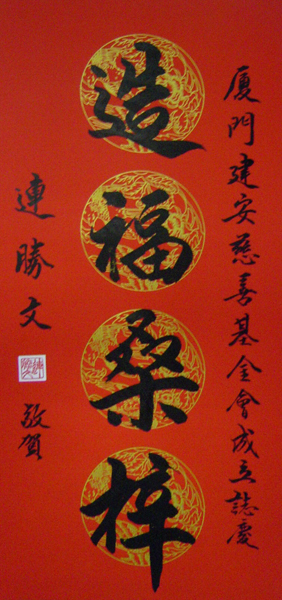 厦門建安慈善基金會成立誌慶
造福桑梓
連勝文
敬賀